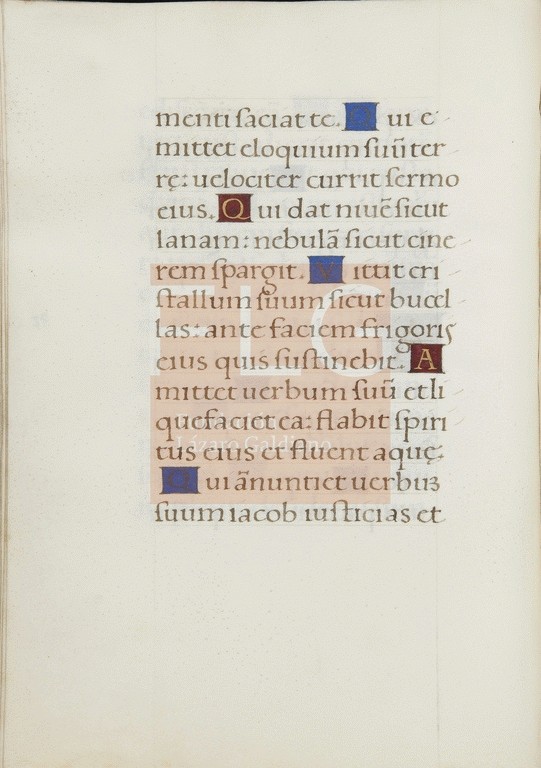 menti saciat te. Q ui e
mittet eloquium suū ter
rę: uelociter currit sermo
eius. Q ui dat niuē sicut
lanam: nebulā sicut cine
rem spargit. M ittit cri
stallum suum sicut bucel
las: ante faciem frigoris
eius quis sustinebit. A
mittet uerbum suū et li
quefaciet ea: flabit spiri
tus eius et fluent aquę.
Q ui ānuntiet uerbuʒ
suum iacob iusticias et
FLG
Lázaro Galdiano